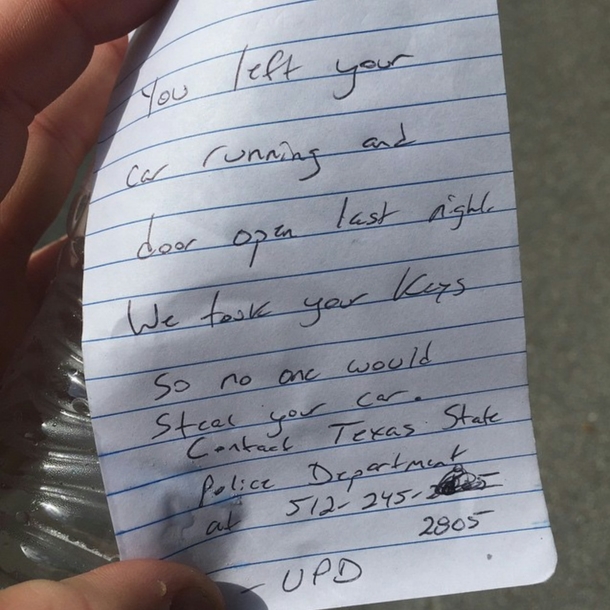 You left your
car running and
door open last night
We took your Keys
So no one would
Steal your car.
Contact Texas State
Police Department
at 512-245-
2805
- UPD